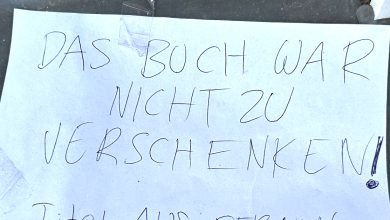 DAS BUCH WAR
NICHT ZU
VERSCHENKEN!
AUS